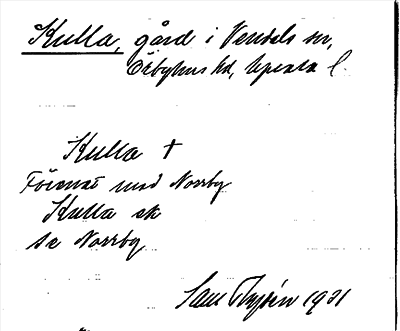 Kulla, gård i Vendels sn,
Örbyhus hd, Uppsala l.
Kulla †
Förenat med Norrby
Kulla ek
se Norrby
1931